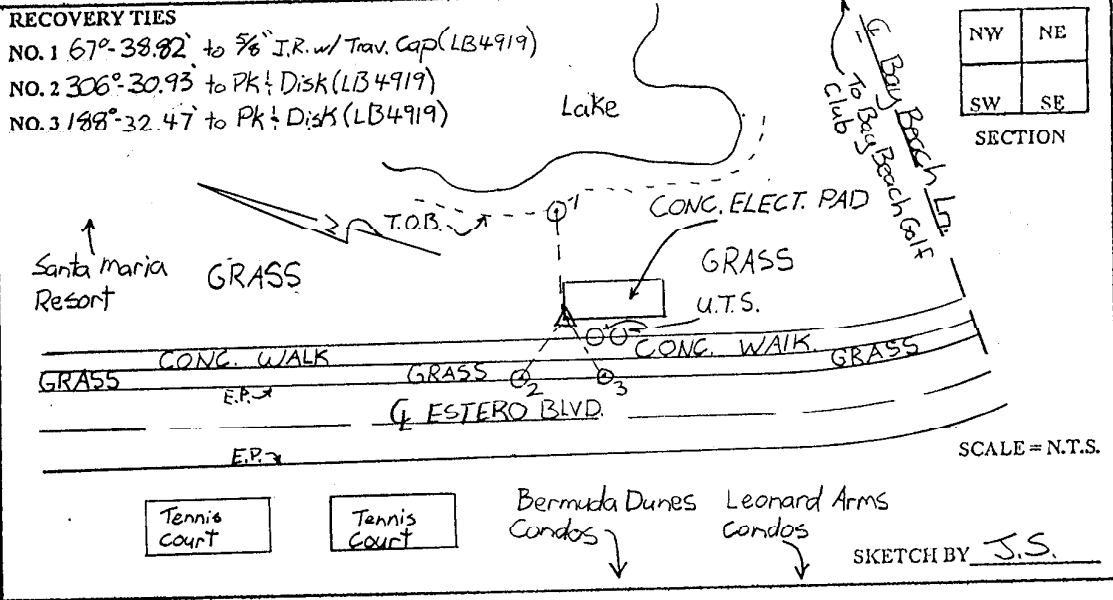 RECOVERY TIES
NO. 1 67°-38.82' to 5/8" I.R. w/ Trav. Cap (LB4919)
NO. 2 306°-30.93' to Pk & Disk (LB4919)
NO. 3 188°-32.47' to Pk & Disk (LB4919)
NW NE
SW SE
SECTION
Lake
℄ Bay Beach Ln.
To Bay Beach Golf
Club
T.O.B.
1
CONC. ELECT. PAD
Santa Maria
Resort
GRASS
GRASS
U.T.S.
CONC. WALK
CONC. WALK
GRASS
GRASS
GRASS
2
3
E.P.
℄ ESTERO BLVD.
E.P.
SCALE = N.T.S.
Tennis
Court
Tennis
Court
Bermuda Dunes
Condos
Leonard Arms
Condos
SKETCH BY J.S.